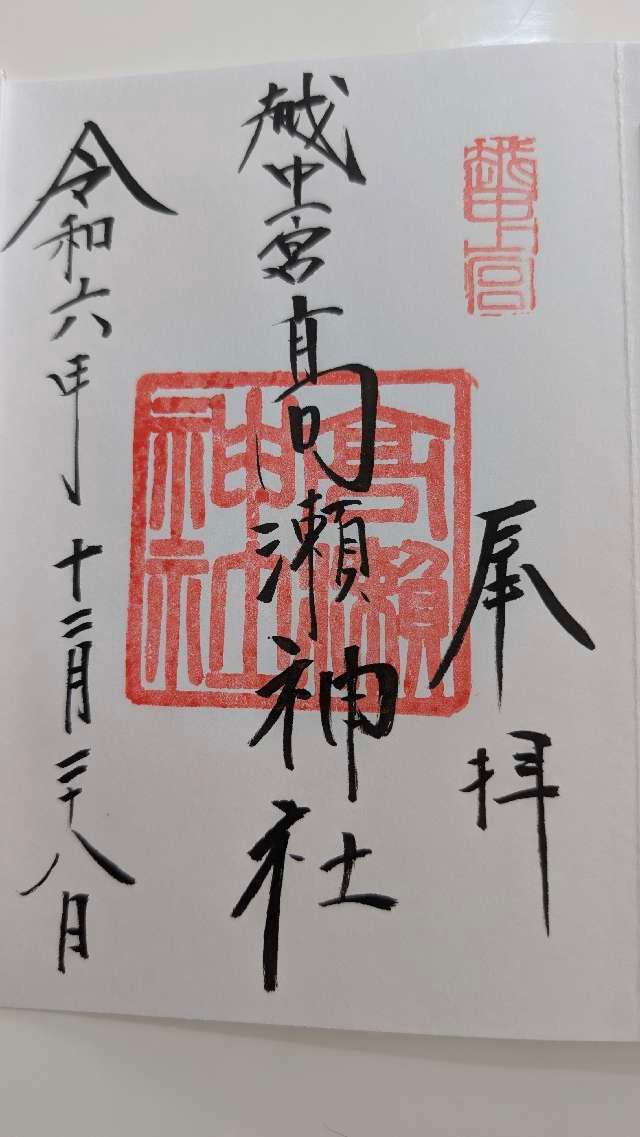 奉拝
越中一宮
越中一宮高瀬神社
高瀬神社
令和六年十二月二十八日